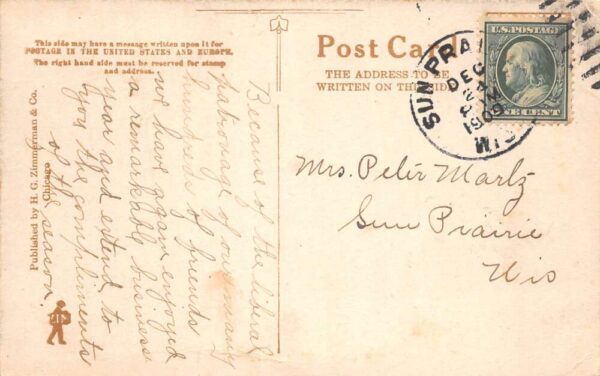 This side may have a message written upon it for
POSTAGE IN THE UNITED STATES AND EUROPE.
The right hand side must be reserved for stamp
and address.
Post Card
THE ADDRESS TO BE
WRITTEN ON THIS SIDE
U.S. POSTAGE
ONE CENT
SUN PRAIRIE
DEC
24
1909
WIS
Published by H. G. Zimmerman & Co.
Chicago
Because of the liberal
patronage of our many
hundreds of friends
we have again enjoyed
a remarkable business
year and extend to
you the compliments
of the season.
Mrs. Peter Martz
Sun Prairie
Wis